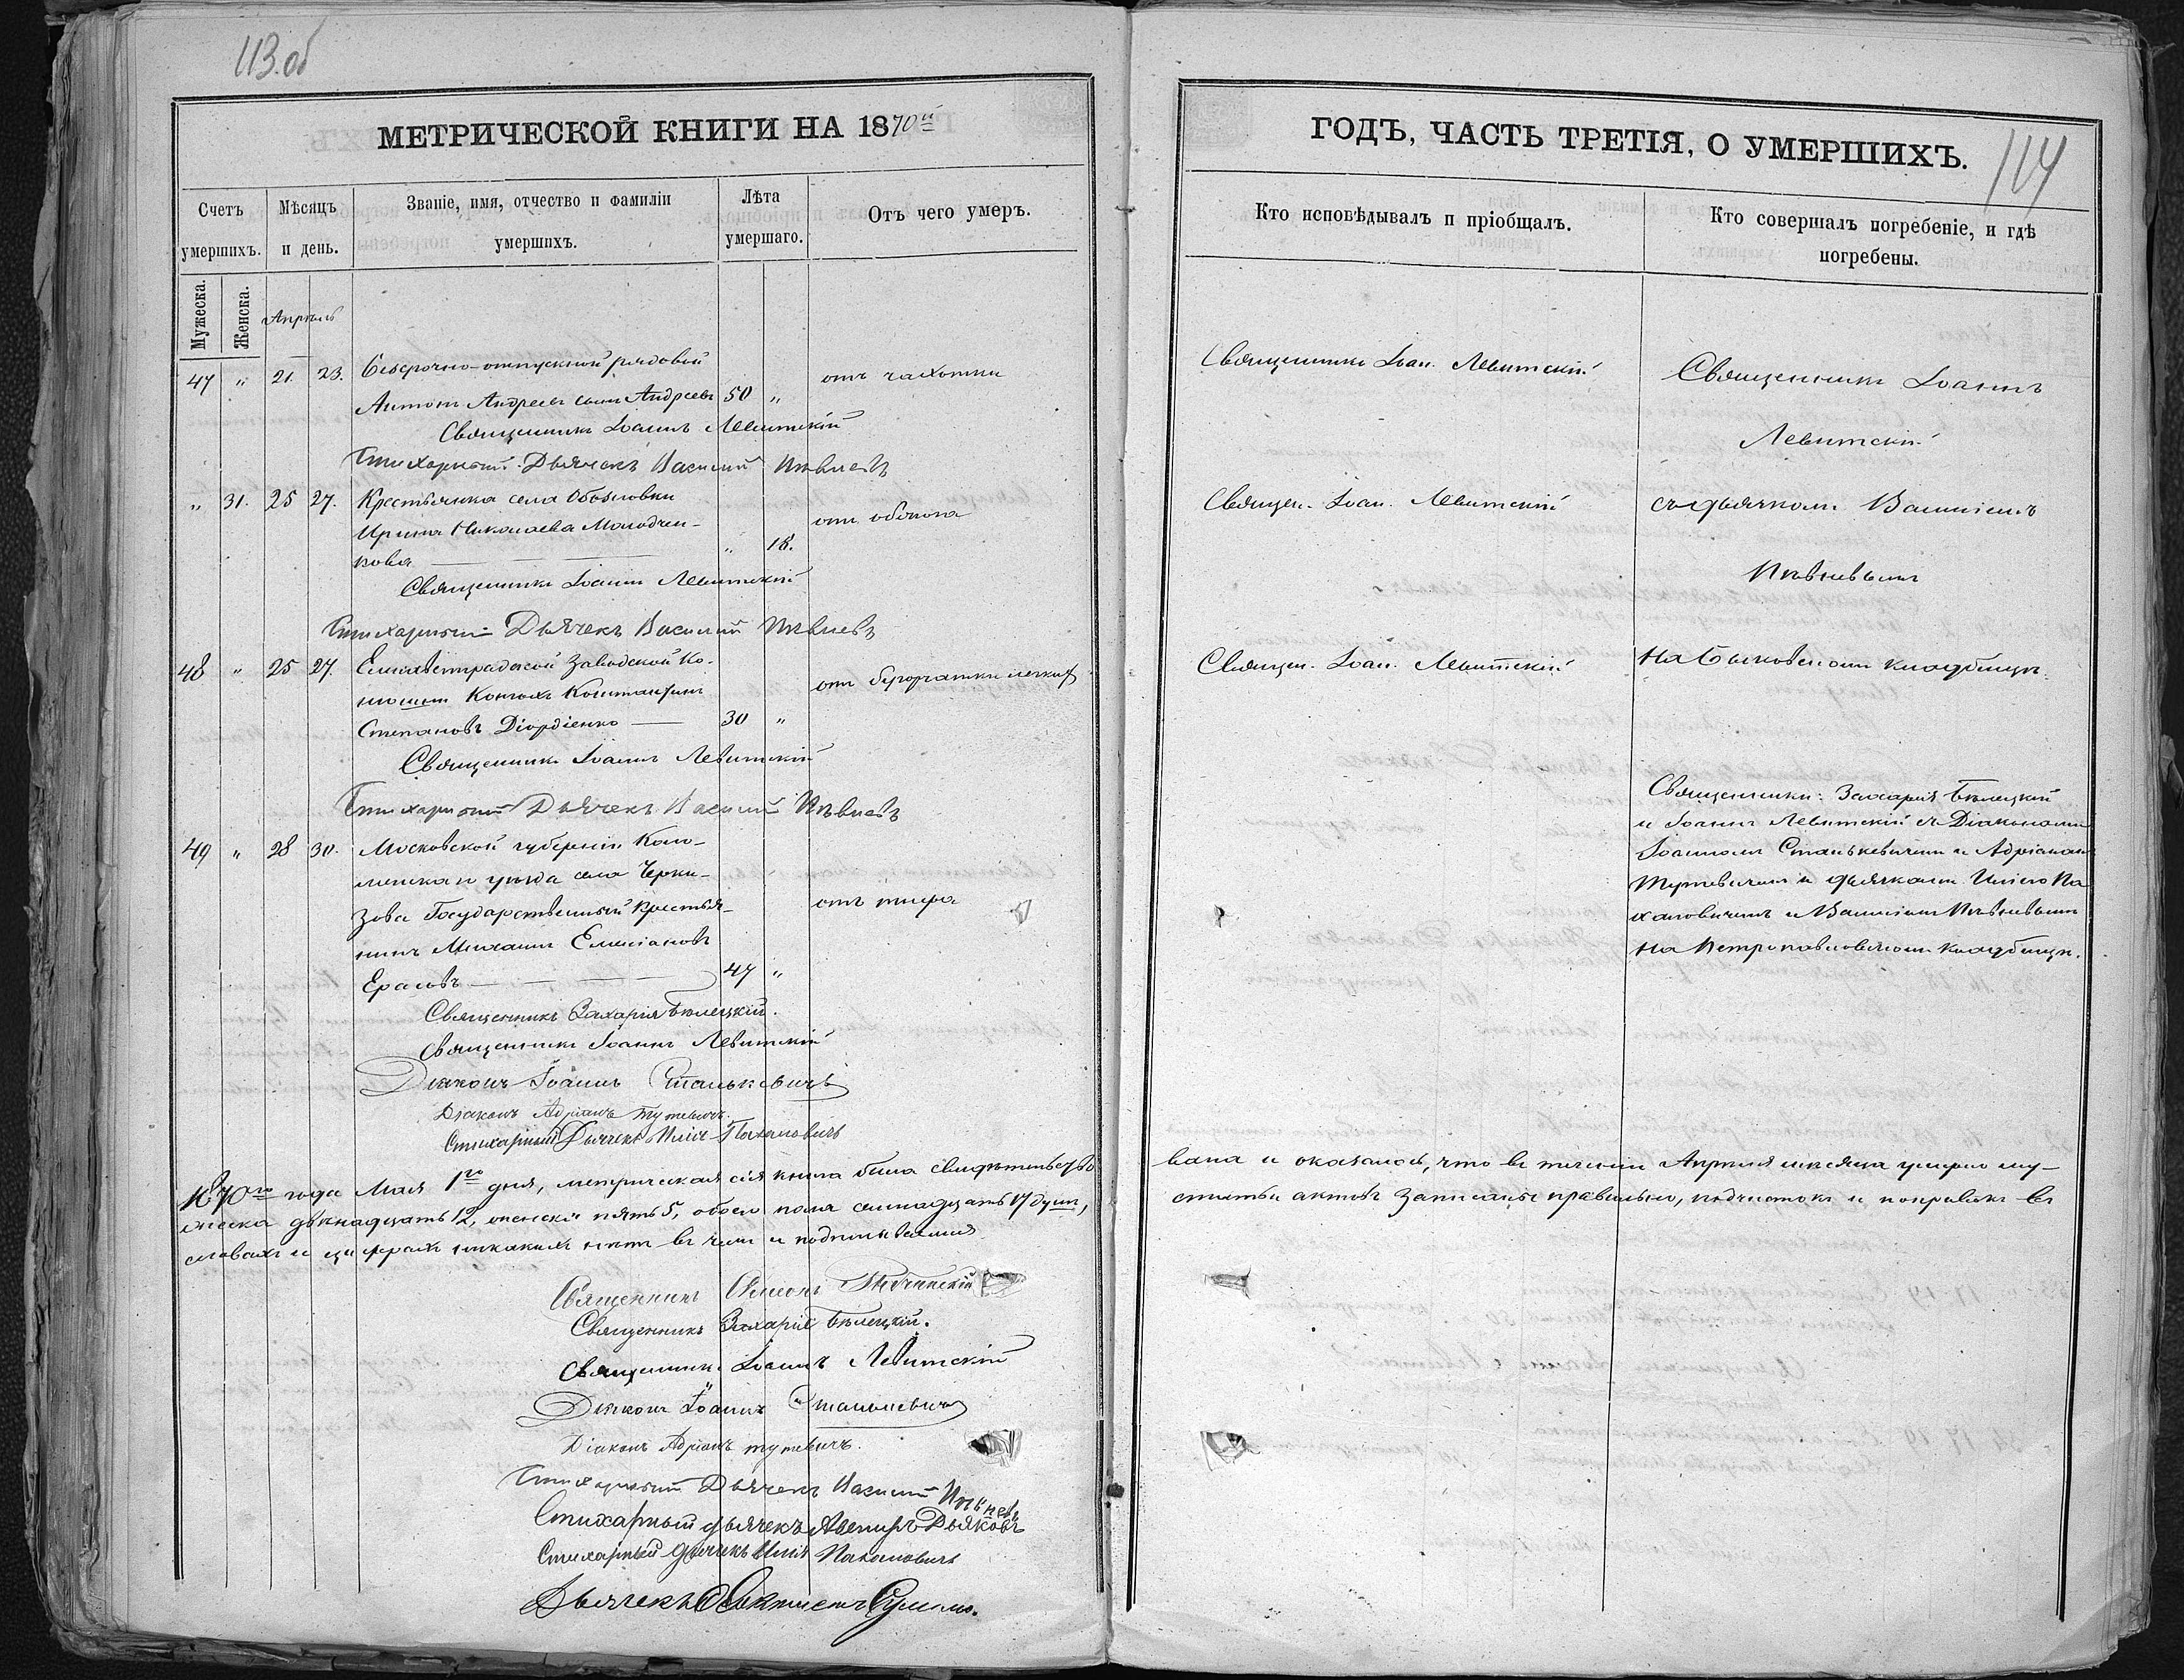 113.об
МЕТРИЧЕСКОЙ КНИГИ НА 1870й
Счетъ умершихъ.
Мѣсяцъ и день.
Званіе, имя, отчество и фамиліи умершихъ.
Лѣта умершаго.
Отъ чего умеръ.
Мужеска.
Женска.
Апрѣль
47 " 21. 23. Безсрочно-отпускной рядовой
Антонъ Андреевъ сынъ Андреевъ 50 " отъ чахотки
Священникъ Іоаннъ Левитскій
Стихарный Дьячекъ Василій Пѣвневъ
" 31. 25 27. Крестьянка села Обозновки
Ирина Николаева Молодчен-
кова " 18. отъ
Священникъ Іоаннъ Левитскій
Стихарный Дьячекъ Василій Пѣвневъ
48 " 25 27. Елисаветградской Заводской Ко-
нюшни Конюхъ Константинъ
Степановъ Діордіенко 30 " отъ бугорчатки легкихъ
Священникъ Іоаннъ Левитскій
Стихарный Дьячекъ Василій Пѣвневъ
49 " 28 30. Московской губерніи Коло-
менскаго уѣзда села Черки-
зова Государственный крестья-
нинъ Михаилъ Емеліановъ
Ерасовъ 47 " отъ тифа
Священникъ Захарія Бѣлецкій.
Священникъ Іоаннъ Левитскій
Діаконъ Іоаннъ Станькевичъ
Діаконъ Адріанъ Тутевичъ.
Стихарный Дьячекъ Илія Пахаловичъ
1870го года Мая 1го дня, метрическая сія книга была свидѣтельство
жеска двѣнадцать 12, женска пять 5, обоего пола семнадцать 17 душъ,
словахъ и цифрахъ никакихъ нѣтъ въ чемъ и подписываемся
Священникъ
Священникъ Захарія Бѣлецкій.
Священникъ Іоаннъ Левитскій
Діаконъ Іоаннъ Станькевичъ
Діаконъ Адріанъ Тутевичъ.
Стихарный Дьячекъ Василій Пѣвневъ
Стихарный дьячекъ Авениръ Дьяковъ
Стихарный дьячекъ Илія Пахаловичъ
Дьячекъ
ГОДЪ, ЧАСТЬ ТРЕТІЯ, О УМЕРШИХЪ.
114
Кто исповѣдывалъ и пріобщалъ.
Кто совершалъ погребеніе, и гдѣ погребены.
Священникъ Іоан. Левитскій
Священникъ Іоаннъ
Левитскій
Священ. Іоан. Левитскій
съ дьячкомъ Василіемъ
Пѣвневымъ
Священ. Іоан. Левитскій
на Быковскомъ кладбищѣ.
Священники: Захарія Бѣлецкій
и Іоаннъ Левитскій съ Діаконами
Іоанномъ Станькевичемъ и Адріаномъ
Тутевичемъ и дьячками Иліею Па
халовичемъ и Василіемъ Пѣвневымъ
на Петропавловскомъ кладбищѣ.
вана и оказалось, что въ теченіи Апрѣля мѣсяца умерло му-
статьи актовъ записаны правильно, подчистокъ и поправокъ въ